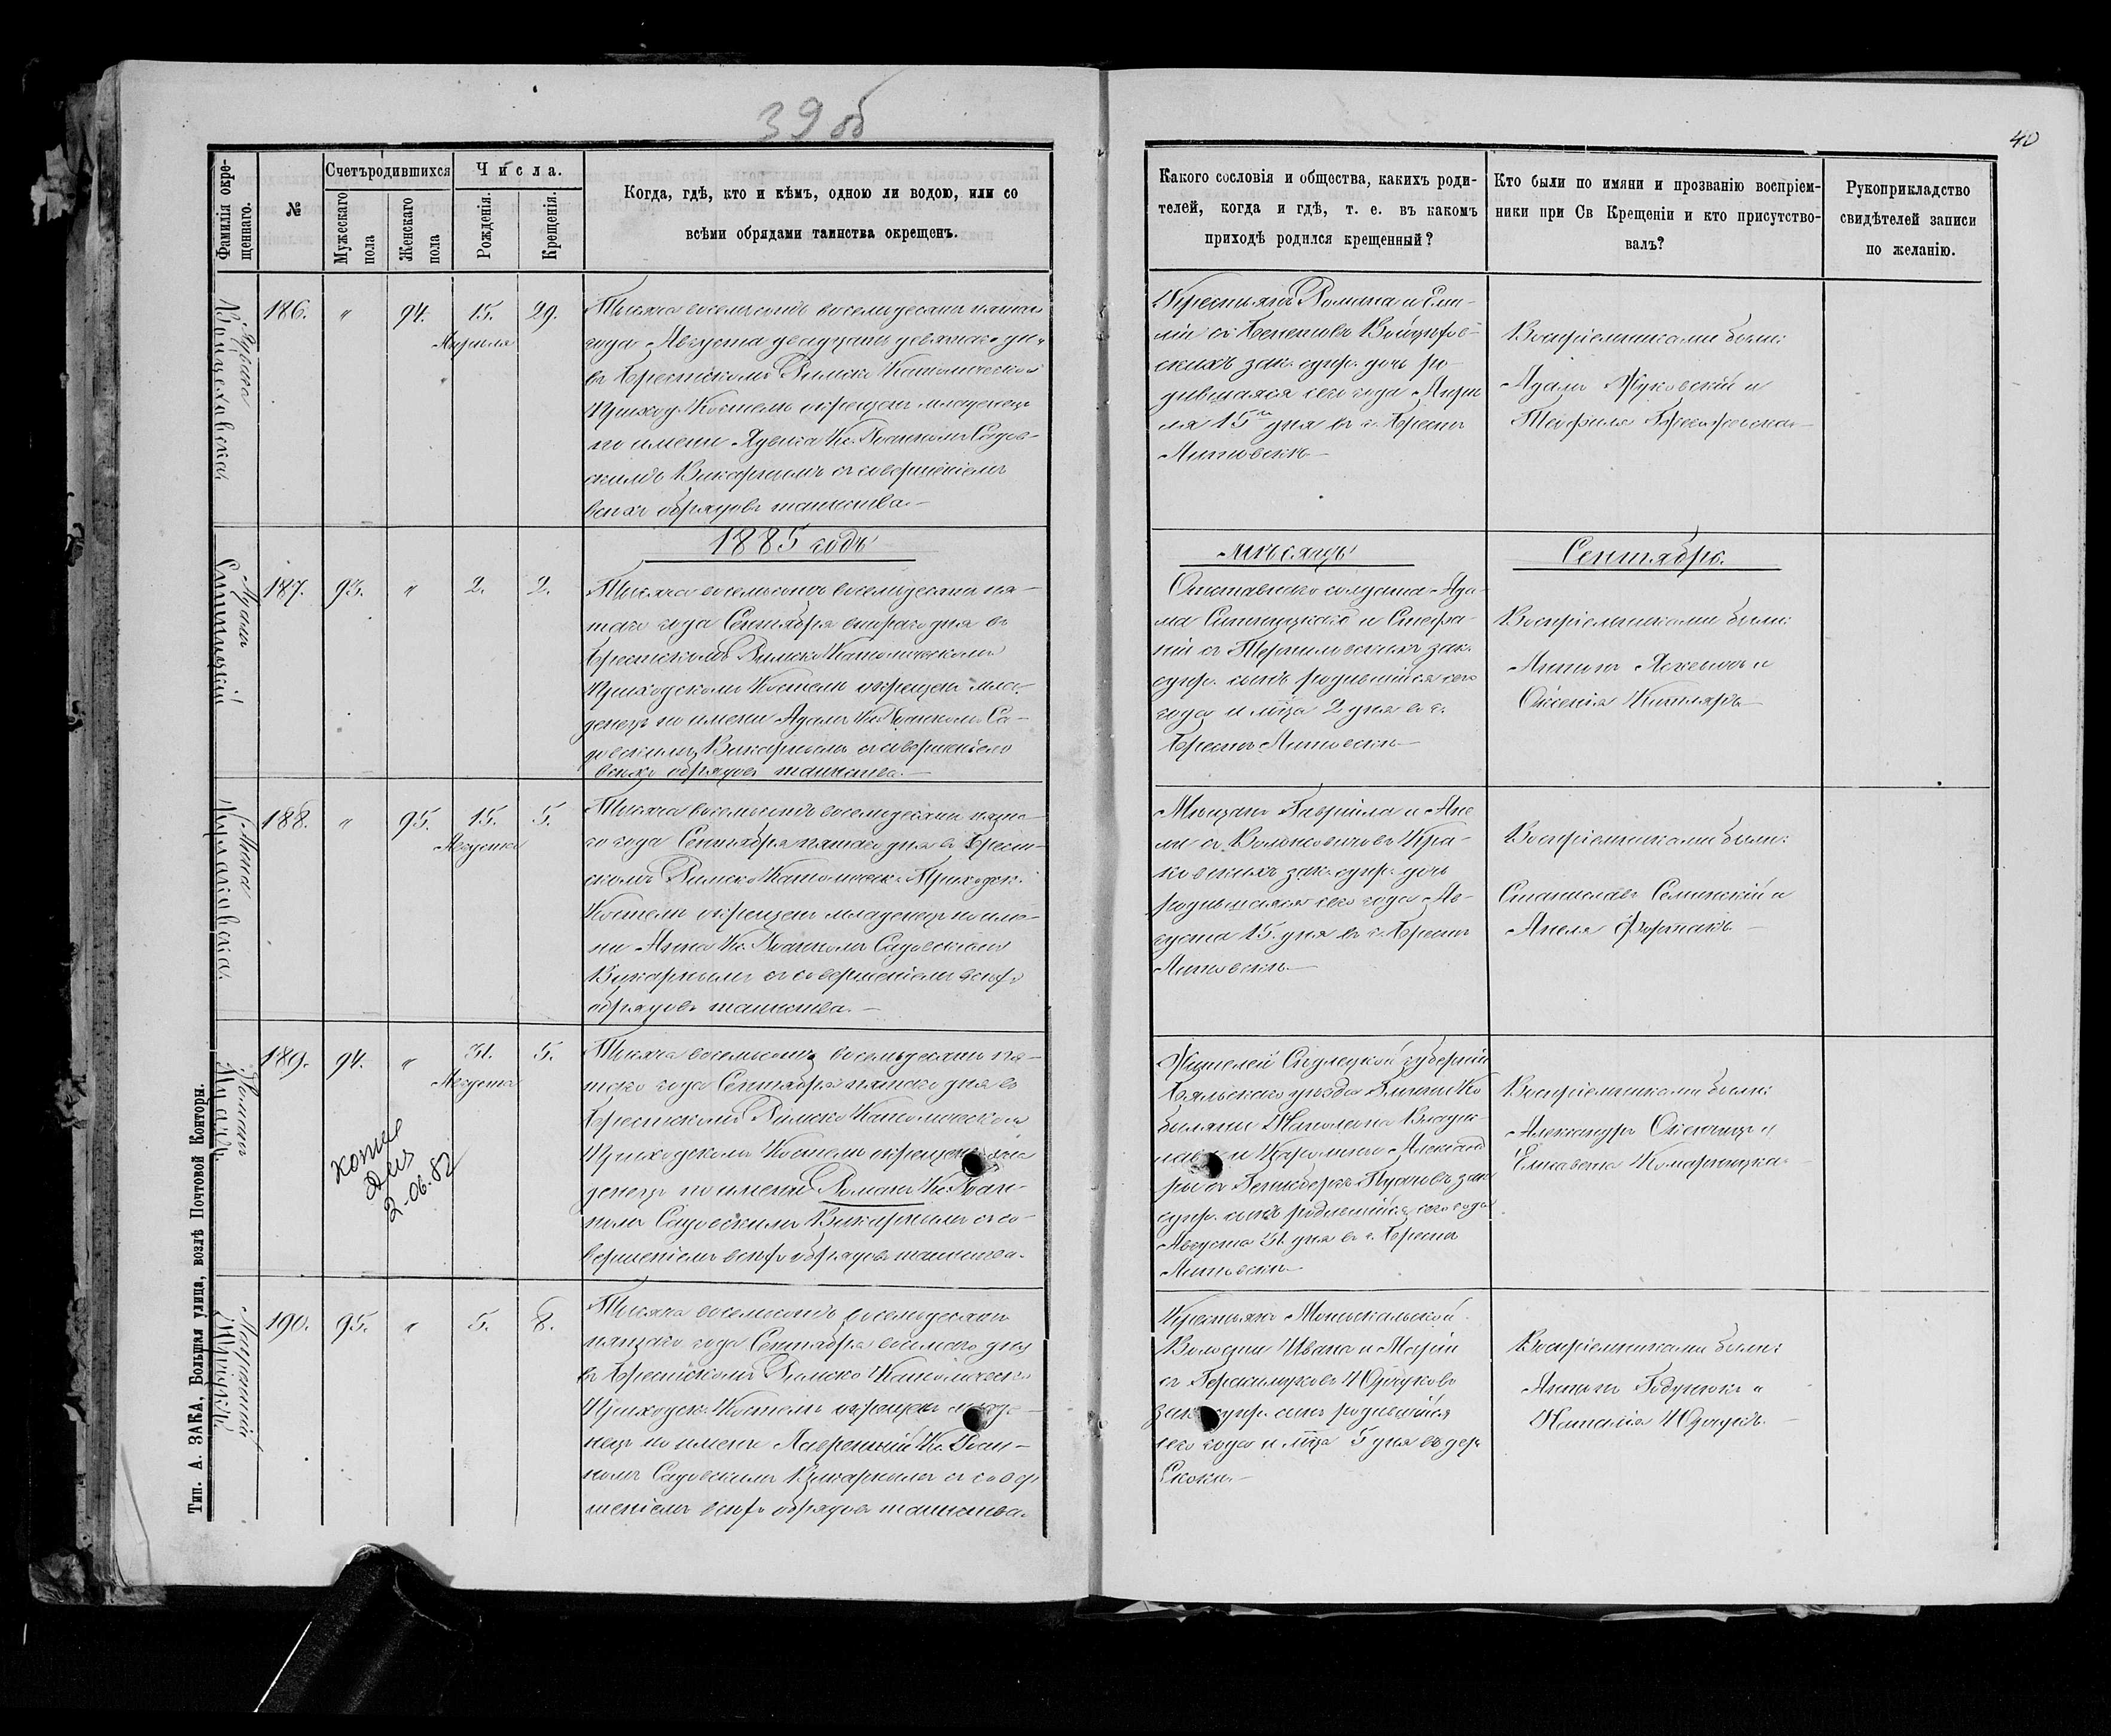 39 об
40
Фамилія окре-
щеннаго.
№
Счетъ родившихся
Мужескаго
пола
Женскаго
пола
Числа.
Рожденія.
Крещенія.
Когда, гдѣ, кто и кѣмъ, одною ли водою, или со
всѣми обрядами таинства окрещенъ.
Какого сословія и общества, какихъ роди-
телей, когда и гдѣ, т. е. въ какомъ
приходѣ родился крещенный?
Кто были по имяни и прозванію воспріем-
ники при Св Крещеніи и кто присутство-
валъ?
Рукоприкладство
свидѣтелей записи
по желанію.
Ядвига
Войцеховская
186.
"
94.
15.
Апрѣля
29.
Тысяча восемьсотъ восемьдесятъ пятаго
года Августа двадцать девятаго дня
въ Брестскомъ Римско Католическомъ
Приход. Костелѣ окрещенъ младенецъ
по имени Ядвига Кс. Іоанномъ Садов-
скимъ Викарнымъ съ совершеніемъ
всѣхъ обрядовъ таинства.—
Крестьянъ Романа и Еми-
ліи съ
скихъ зак. супр. дочь ро-
дившаяся сего года Апрѣ
ля 15 дня въ г. Брестѣ
Литовскѣ—
Воспріемниками были:
Адамъ Жуковскій и
Теофиля
1885 годъ
мѣсяцъ
Сентябрь.
Адамъ
187.
93.
"
2.
2.
Тысяча восемьсотъ восемьдесятъ пя-
таго года Сентября втораго дня въ
Брестскомъ Римско Католическомъ
Приходскомъ Костелѣ окрещенъ мла-
денецъ по имени Адамъ Кс. Іоанномъ Са-
довскимъ Викарнымъ съ совершеніемъ
всѣхъ обрядовъ таинства.—
Отставнаго солдата Ада-
ма и Стефа-
ніи съ зак.
супр. сынъ родившійся сего
года и мца 2 дня въ г.
Брестѣ Литовскѣ—
Воспріемниками были:
Антонъ и
Анна
188.
"
95.
15.
Августа
5.
Тысяча восемьсотъ восемьдесятъ пята-
го года Сентября пятаго дня въ Брест-
скомъ Римско Католическ. Приходск.
Костелѣ окрещенъ младенецъ по име-
ни Анна Кс. Іоанномъ Садовскимъ
Викарнымъ съ совершеніемъ всѣхъ
обрядовъ таинства.—
Мѣщанъ Гавріила и Ане
ли съ Вольковичовъ Кра-
ковскихъ зак. супр. дочь
родившаяся сего года Ав-
густа 15 дня въ г. Брестѣ
Литовскѣ—
Воспріемниками были:
Станиславъ и
Анеля
Романъ
189.
94.
"
31.
Августа
5.
копие
2-06-82
Тысяча восемьсотъ восемьдесятъ пя-
таго года Сентября пятаго дня въ
Брестскомъ Римско Католическомъ
Приходскомъ Костелѣ окрещенъ мла
денецъ по имени Романъ Кс. Іоан-
номъ Садовскимъ Викарнымъ съ со-
вершеніемъ всѣхъ обрядовъ таинства.
Жителей Сѣдлецкой губерніи
Бяльскаго уѣзда Гмины Ко
биляны Наполеона
и Каролины Александ
ры съ зак
супр. сынъ родившійся сего года
Августа 31 дня въ г. Брестѣ
Литовскѣ
Воспріемниками были:
Александръ и
Елисавета Комарницкая
Лаврентій
190.
95.
"
5.
8.
Тысяча восемьсотъ восемьдесятъ
пятаго года Сентября восьмаго дня
въ Брестскомъ Римско Католическ.
Приходск. Костелѣ окрещенъ младе-
нецъ по имени Лаврентій Кс. Іоан-
номъ Садовскимъ Викарнымъ съ совер
шеніемъ всѣхъ обрядовъ таинства.
Крестьянъ
Волости Ивана и Маріи
съ
зак. супр. сынъ родившійся
сего года и мца 5 дня въ дер.
Скоки.—
Воспріемниками были:
Антонъ и
Наталія
Тип. А. ЗАКА, Большая улица, возлѣ Почтовой Конторы.